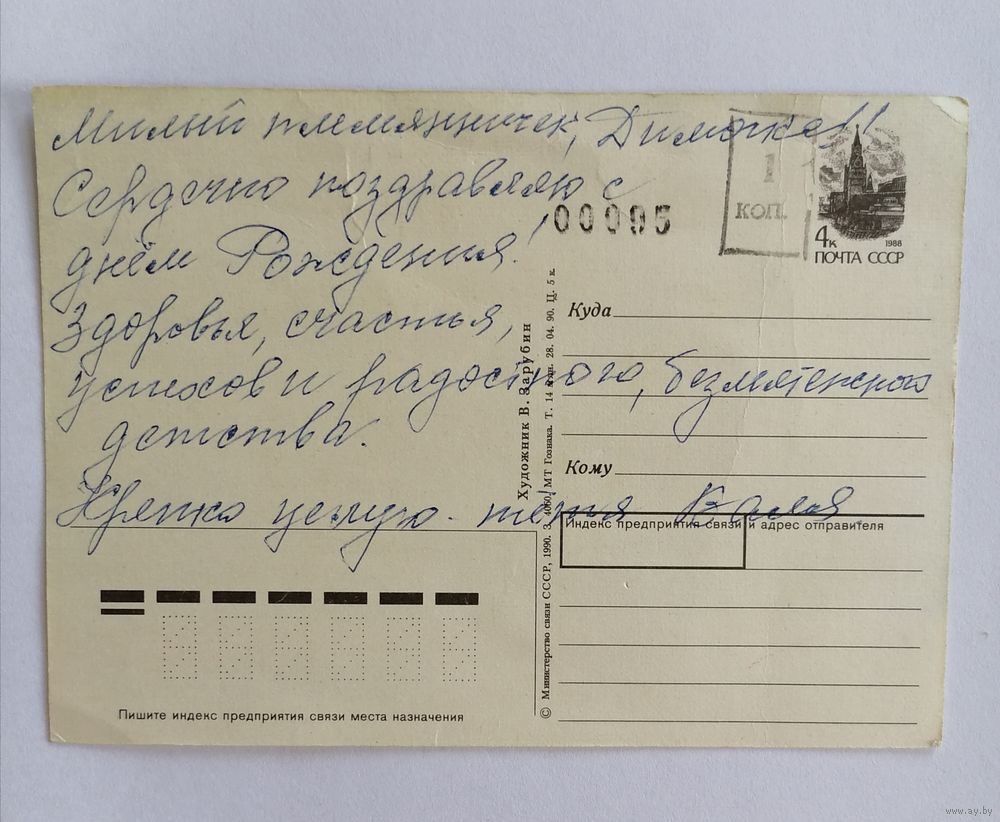 Милый племянничек, Димочка!!
Сердечно поздравляю с
днём Рождения!
Здоровья, счастья,
успехов и радостного, безмятежного
детства.
Крепко целую - тётя Валя.
00095
1
КОП.
4к
1988
ПОЧТА СССР
Куда
Кому
Индекс предприятия связи и адрес отправителя
Художник В. Зарубин
© Министерство связи СССР, 1990. З. 4060. МТ Гознака. Т. 14 млн. 28. 04. 90. Ц. 5 к.
Пишите индекс предприятия связи места назначения
www.ay.by